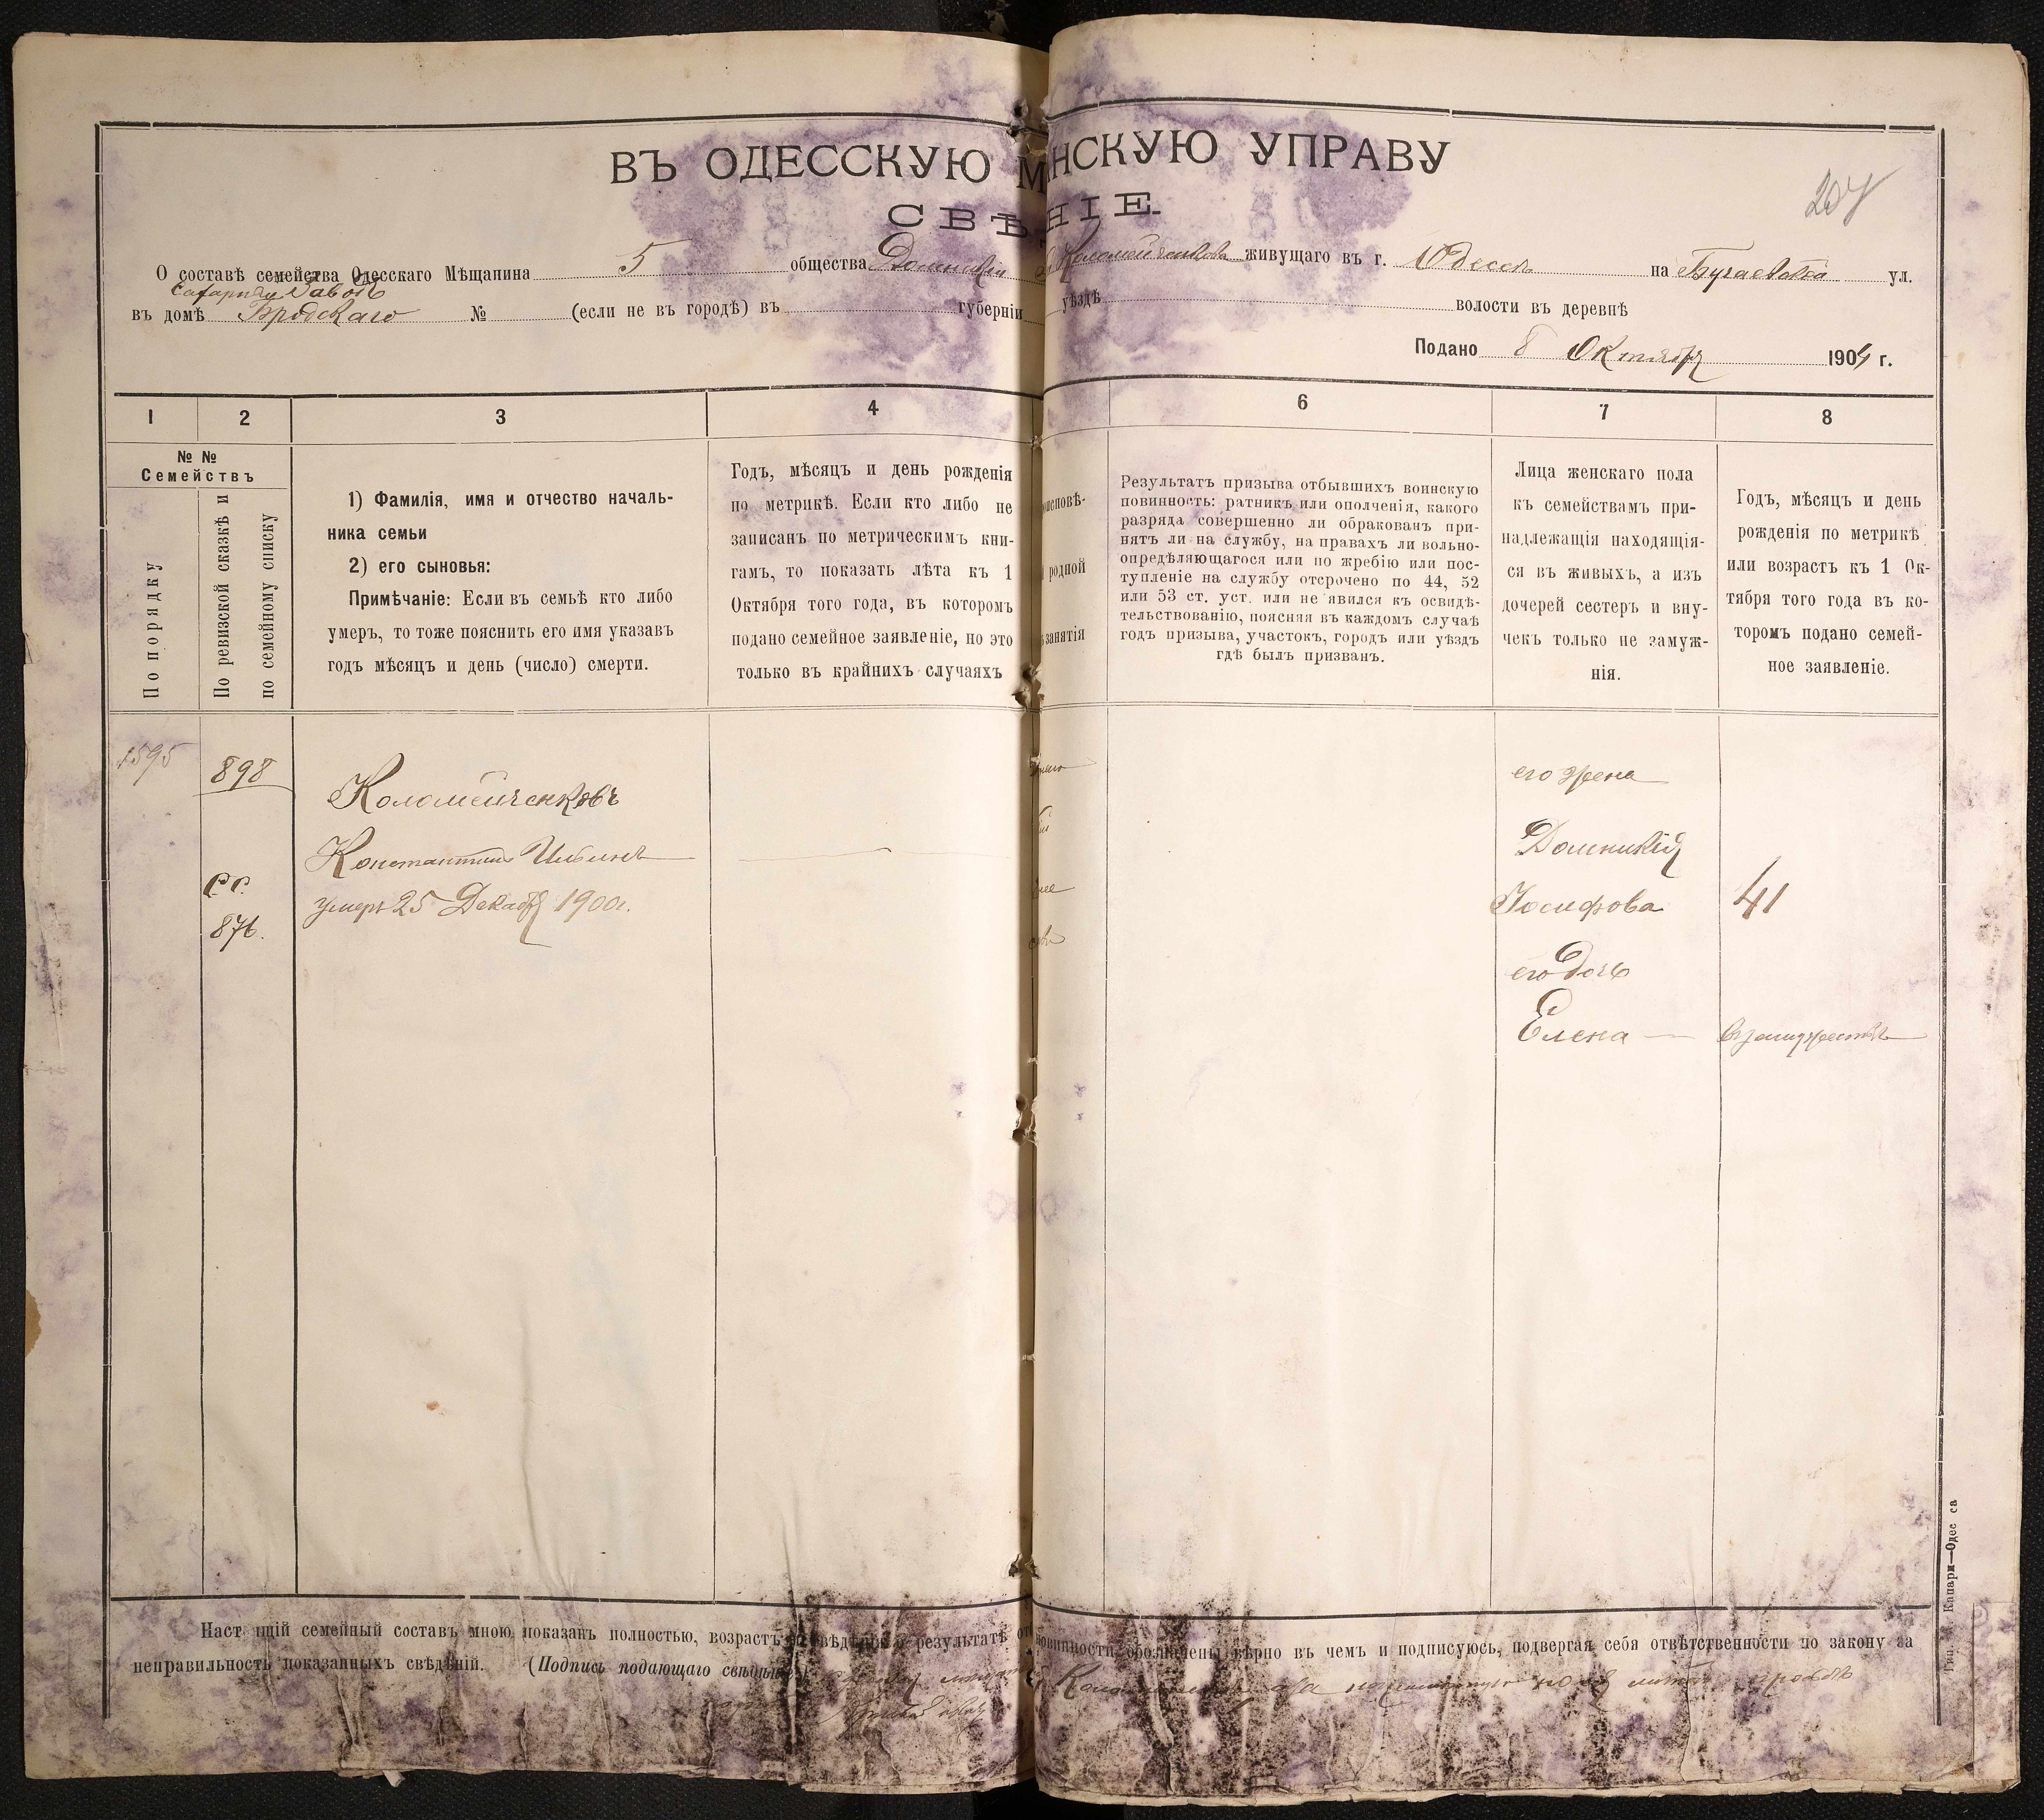 ВЪ ОДЕССКУЮ М НСКУЮ УПРАВУ
СВѢ НІЕ.
207
О составѣ семейства Одесскаго Мѣщанина 5 общества Домникіи Коломейченкова живущаго въ г. Одессѣ на Бугаевской ул.
Сахарный Заводъ
въ домѣ Бродскаго № (если не въ городѣ) въ губерніи уѣздѣ волости въ деревнѣ
Подано 8 Октября 1904 г.
1 2 3 4 6 7 8
№ №
Семействъ
По порядку
По ревизской сказкѣ и
по семейному списку
1) Фамилія, имя и отчество началь-
ника семьи
2) его сыновья:
Примѣчаніе: Если въ семьѣ кто либо
умеръ, то тоже пояснить его имя указавъ
годъ мѣсяцъ и день (число) смерти.
Годъ, мѣсяцъ и день рожденія
по метрикѣ. Если кто либо не
записанъ по метрическимъ кни-
гамъ, то показать лѣта къ 1
Октября того года, въ которомъ
подано семейное заявленіе, но это
только въ крайнихъ случаяхъ
исповѣ-
родной
занятія
Результатъ призыва отбывшихъ воинскую
повинность: ратникъ или ополченія, какого
разряда совершенно ли обракованъ при-
нятъ ли на службу, на правахъ ли вольно-
опредѣляющагося или по жребію или пос-
тупленіе на службу отсрочено по 44, 52
или 53 ст. уст. или не явился къ освидѣ-
тельствованію, поясняя въ каждомъ случаѣ
годъ призыва, участокъ, городъ или уѣздъ
гдѣ былъ призванъ.
Лица женскаго пола
къ семействамъ при-
надлежащія находящія-
ся въ живыхъ, а изъ
дочерей сестеръ и вну-
чекъ только не замуж-
нія.
Годъ, мѣсяцъ и день
рожденія по метрикѣ
или возрастъ къ 1 Ок-
тября того года въ ко-
торомъ подано семей-
ное заявленіе.
1595
898
Коломейченковъ
Константинъ Ильинъ
умеръ 25 Декабря 1900г.
с.с.
876.
его жена
Домникія
Іосифова 41
его дочь
Елена — въ замужествѣ
Наст щій семейный составъ мною показанъ полностью, возрастъ свѣдѣнія о результатѣ от повинности обозначены вѣрно въ чемъ и подписуюсь, подвергая себя отвѣтственности по закону за
неправильность показанныхъ свѣдѣній. (Подпись подающаго свѣдѣніе)
Тип. Капари—Одес са